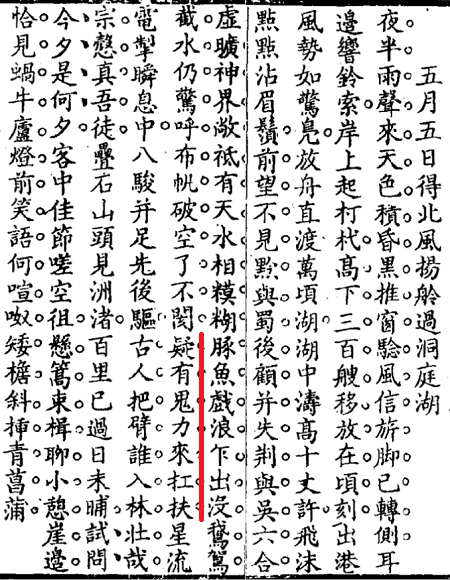 五月五日得北風揚舲過洞庭湖
夜半雨聲來天色積昏黑推窗驗風信旂脚已轉側耳
邊響鈴索岸上起朾杙高下三百艘移放在頃刻出港
風勢如驚鳧放舟直渡萬頃湖湖中濤高十丈許飛沫
點點沾眉鬚前望不見黔與蜀後顧并失荆與吳六合
虛曠神界敞祗有天水相糢糊豚魚戲浪乍出沒鵞鴐
截水仍驚呼布帆破空了不閡疑有鬼力來扛扶星流
電掣瞬息中八駿并足先後驅古人把臂誰入林壯哉
宗慤真吾徒疊石山頭見洲渚百里已過日未晡試問
今夕是何夕客中佳節嗟空徂懸篙束楫聊小憩崖邊
恰見蝸牛廬燈前笑語何喧呶矮檐斜揷青菖蒲